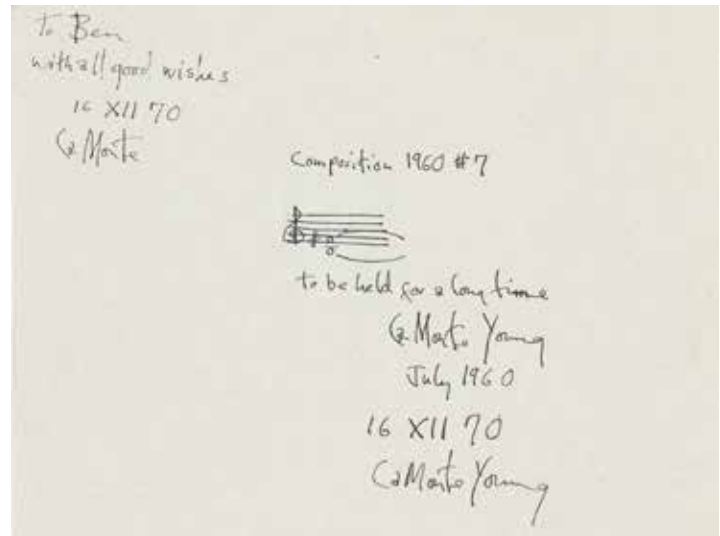 To Ben
with all good wishes
16 XII 70
La Monte
Composition 1960 #7
to be held for a long time
La Monte Young
July 1960
16 XII 70
La Monte Young